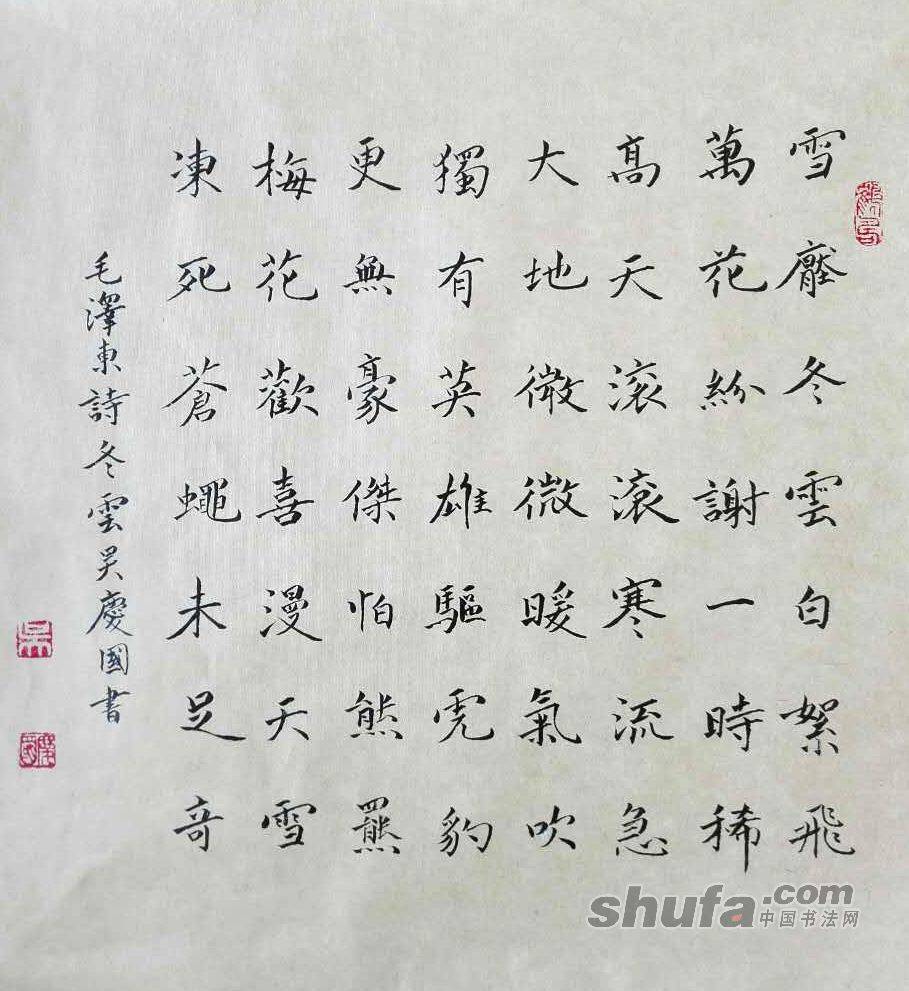 雪壓冬雲白絮飛
萬花紛謝一時稀
高天滚滚寒流急
大地微微暖氣吹
獨有英雄驅虎豹
更無豪傑怕熊羆
梅花歡喜漫天雪
凍死蒼蠅未足奇
毛澤東詩冬雲吴慶國書
吴
慶國
shufa.com
中国书法网